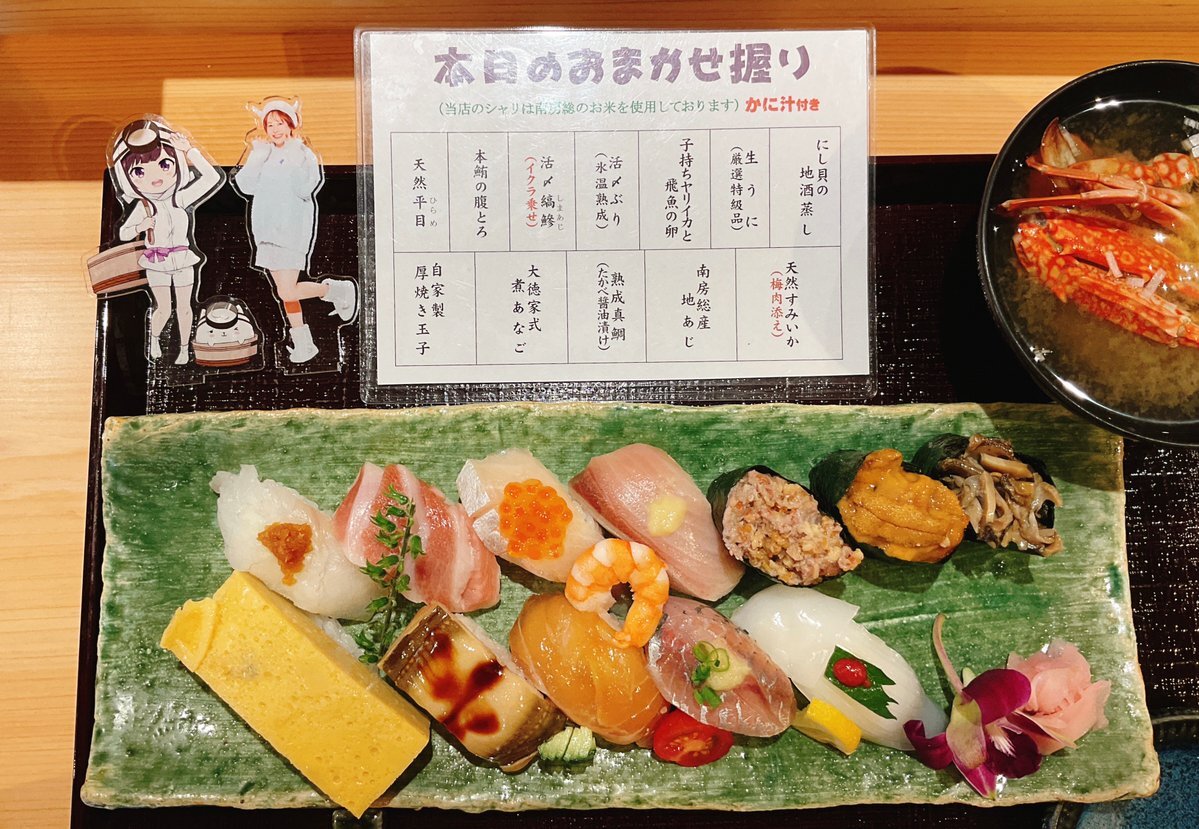 本日のおまかせ握り
(当店のシャリは南房総のお米を使用しております) かに汁付き
にし貝の
地酒蒸し
生うに
(厳選特級品)
子持ちヤリイカと
飛魚の卵
活〆ぶり
(氷温熟成)
活〆縞鯵
しまあじ
(イクラ乗せ)
本鮪の腹とろ
天然平目
ひらめ
天然すみいか
(梅肉添え)
南房総産
地あじ
熟成真鯛
(たかべ醤油漬け)
大徳家式
煮あなご
自家製
厚焼き玉子